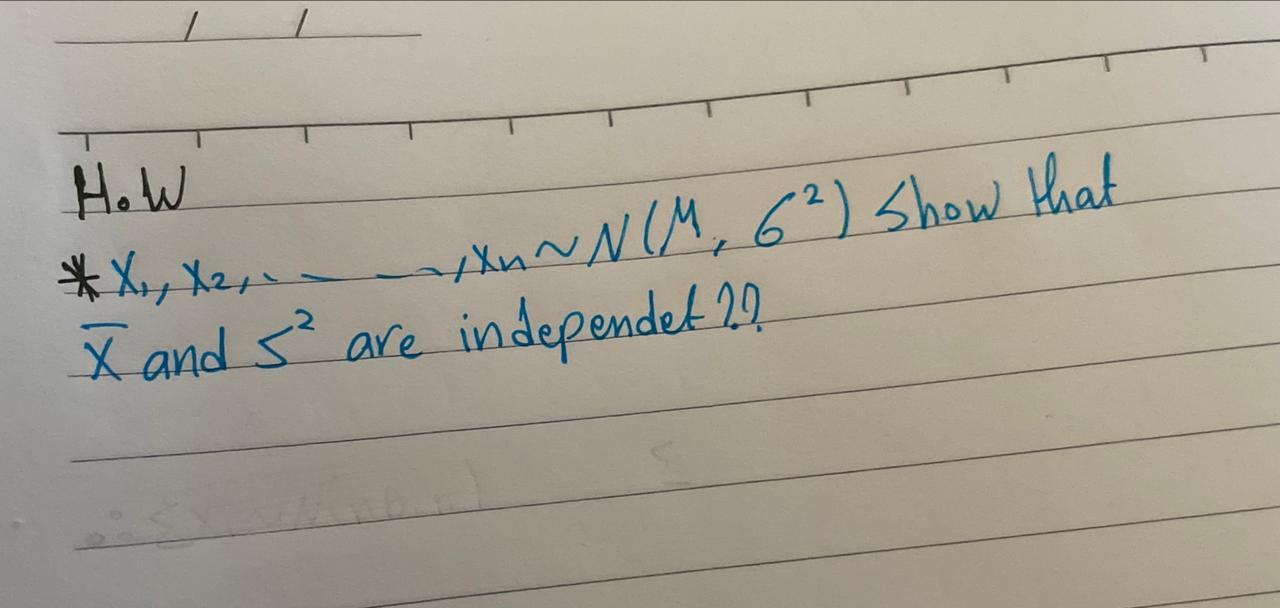 / /
H.W
* X1, X2, . - - -, Xn ~ N(M, 6²) Show that
X̄ and S² are independet ??